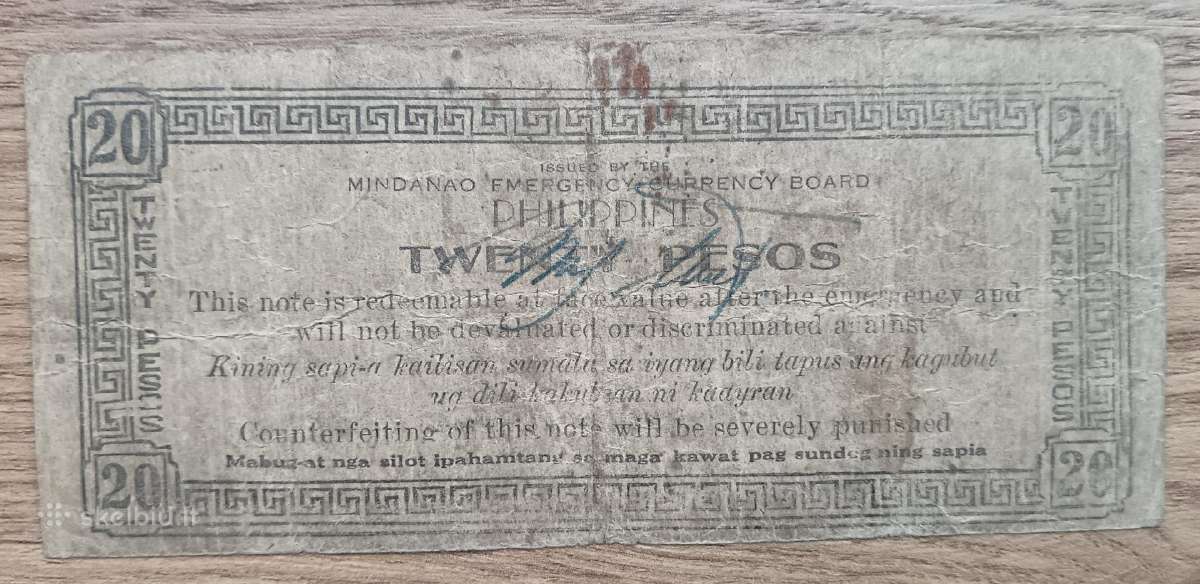 20 20
ISSUED BY THE
MINDANAO EMERGENCY CURRENCY BOARD
PHILIPPINES
TWENTY PESOS
This note is redeemable at face value after the emergency and
will not be devaluated or discriminated against
Kining sapi-a kailisan sumala sa iyang bili tapus ang kagubut
ug dili ni kadyran
Counterfeiting of this note will be severely punished
Mabug-at nga silot ipahamtang sa maga kawat pag sundog ning sapia
TWENTY PESOS
TWENTY PESOS
20 20
skelbiu.lt